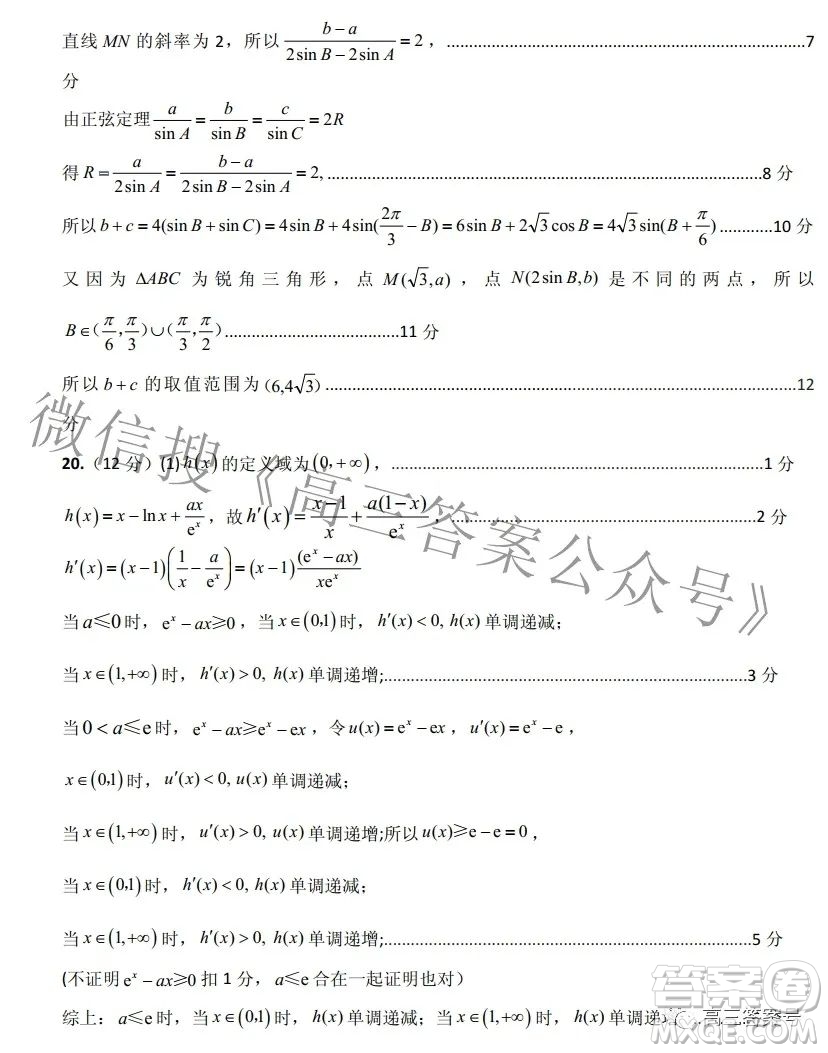 直线 MN 的斜率为 2，所以 \frac{b-a}{2\sin B-2\sin A}=2，................7
分
由正弦定理 \frac{a}{\sin A}=\frac{b}{\sin B}=\frac{c}{\sin C}=2R
得 R=\frac{a}{2\sin A}=\frac{b-a}{2\sin B-2\sin A}=2,................8 分
所以 b+c=4(\sin B+\sin C)=4\sin B+4\sin(\frac{2\pi}{3}-B)=6\sin B+2\sqrt{3}\cos B=4\sqrt{3}\sin(B+\frac{\pi}{6})............10 分
又因为 ΔABC 为锐角三角形，点 M(\sqrt{3},a)，点 N(2\sin B,b) 是不同的两点，所以
B∈(\frac{\pi}{6},\frac{\pi}{3})∪(\frac{\pi}{3},\frac{\pi}{2})................11 分
所以 b+c 的取值范围为 (6,4\sqrt{3})................12
分
20.（12 分）(1) h(x) 的定义域为 (0,+∞)，................1 分
h(x)=x-\ln x+\frac{ax}{e^x}，故 h′(x)=\frac{x-1}{x}+\frac{a(1-x)}{e^x}，................2 分
h′(x)=(x-1)(\frac{1}{x}-\frac{a}{e^x})=(x-1)\frac{(e^x-ax)}{xe^x}
当 a≤0 时，e^x-ax≥0，当 x∈(0,1) 时，h′(x)<0, h(x) 单调递减；
当 x∈(1,+∞) 时，h′(x)>0, h(x) 单调递增;................3 分
当 0<a≤e 时，e^x-ax≥e^x-ex，令 u(x)=e^x-ex，u′(x)=e^x-e，
x∈(0,1) 时，u′(x)<0, u(x) 单调递减；
当 x∈(1,+∞) 时，u′(x)>0, u(x) 单调递增;所以 u(x)≥e-e=0，
当 x∈(0,1) 时，h′(x)<0, h(x) 单调递减；
当 x∈(1,+∞) 时，h′(x)>0, h(x) 单调递增;................5 分
(不证明 e^x-ax≥0 扣 1 分，a≤e 合在一起证明也对）
综上：a≤e 时，当 x∈(0,1) 时，h(x) 单调递减；当 x∈(1,+∞) 时，h(x) 单调递增
微信搜《高三答案公众号》
答案圈
高三答案号